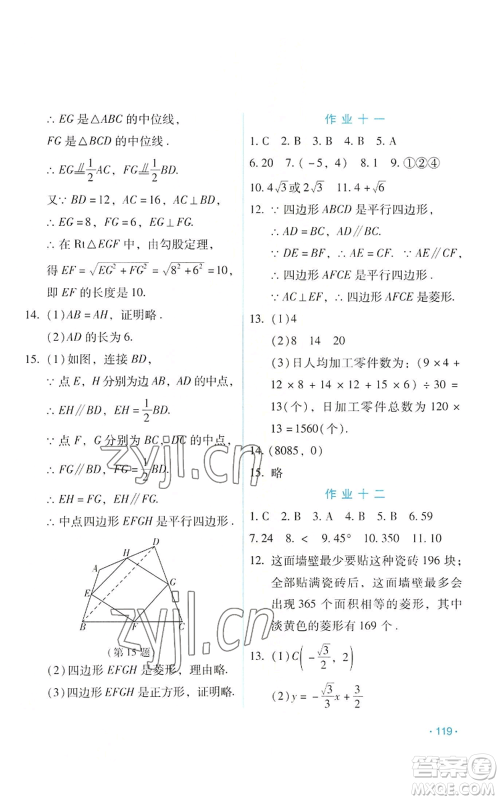 ∴ EG 是△ABC 的中位线,
FG 是△BCD 的中位线.
∴ EG⫽1/2AC, FG⫽1/2BD.
又∵ BD=12, AC=16, AC⊥BD,
∴ EG=8, FG=6, EG⊥FG.
∴ 在 Rt△EGF 中, 由勾股定理,
得 EF=√(EG²+FG²)=√(8²+6²)=10.
即 EF 的长度是 10.
14. (1) AB=AH, 证明略.
(2) AD 的长为 6.
15. (1) 如图, 连接 BD,
∵ 点 E, H 分别为边 AB, DA 的中点,
∴ EH∥BD, EH=1/2BD.
∵ 点 F, G 分别为 BC, DC 的中点,
∴ FG∥BD, FG=1/2BD,
∴ EH=FG, EH∥FG.
∴ 中点四边形 EFGH 是平行四边形.
D
H
A
G
E
B F C
(第 15 题)
(2) 四边形 EFGH 是菱形, 理由略.
(3) 四边形 EFGH 是正方形, 证明略.
作业十一
1. C 2. B 3. B 4. B 5. A
6. 20 7. (-5, 4) 8. 1 9. ①②④
10. 4√3或2√3 11. 4+√6
12. ∵ 四边形 ABCD 是平行四边形,
∴ AD=BC, AD∥BC.
∵ DE=BF, ∴ AE=CF. ∵ AE∥CF,
∴ 四边形 AFCE 是平行四边形.
∵ AC⊥EF, ∴ 四边形 AFCE 是菱形.
13. (1) 4
(2) 8 14 20
(3) 日人均加工零件数为 (9×4+
12×8+14×12+15×6)÷30=
13(个), 日加工零件总数为 120
×13=1560(个).
14. (8085, 0)
15. 略
作业十二
1. C 2. B 3. A 4. C 5. B 6. 59
7. 24 8. < 9. 45° 10. 350 11. 12
12. 这面墙壁最少要贴这种瓷砖 196 块;
全部贴满瓷砖后, 这面墙壁最多会
出现 365 个面积相等的菱形, 其中
淡黄色的菱形有 169 个.
13. (1) C(-√3/2, 2)
(2) y=-√3/3x+3/2
·119·
zyjl.cn
zyjl.cn
作业精灵